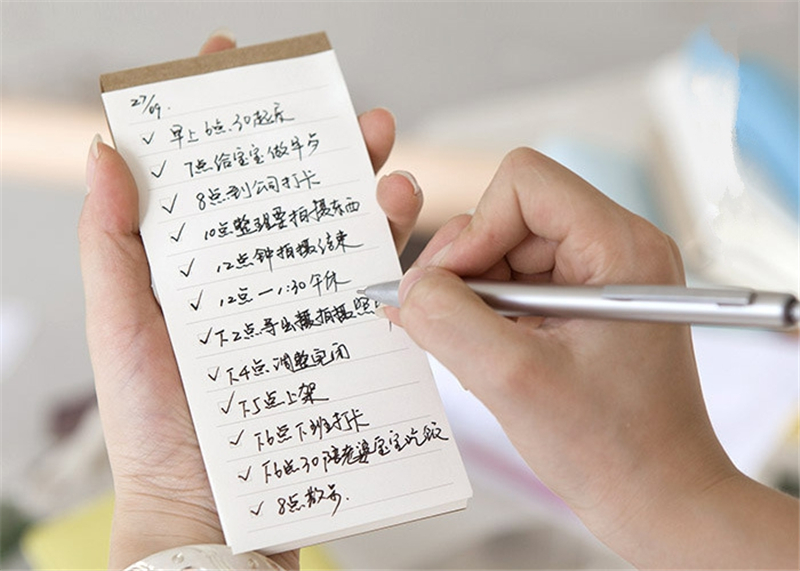 27/09.
✓ 早上6点30起床
✓ 7点给宝宝做早点
✓ 8点到公司打卡
✓ 10点整理要拍摄东西
✓ 12点钟拍摄结束
✓ 12点一1:30午休
✓ 下2点导出摄拍摄照片
✓ 下4点调整完图
✓ 下5点上架
✓ 下6点下班打卡
✓ 下6点30陪老婆宝宝吃饭
✓ 8点散步.